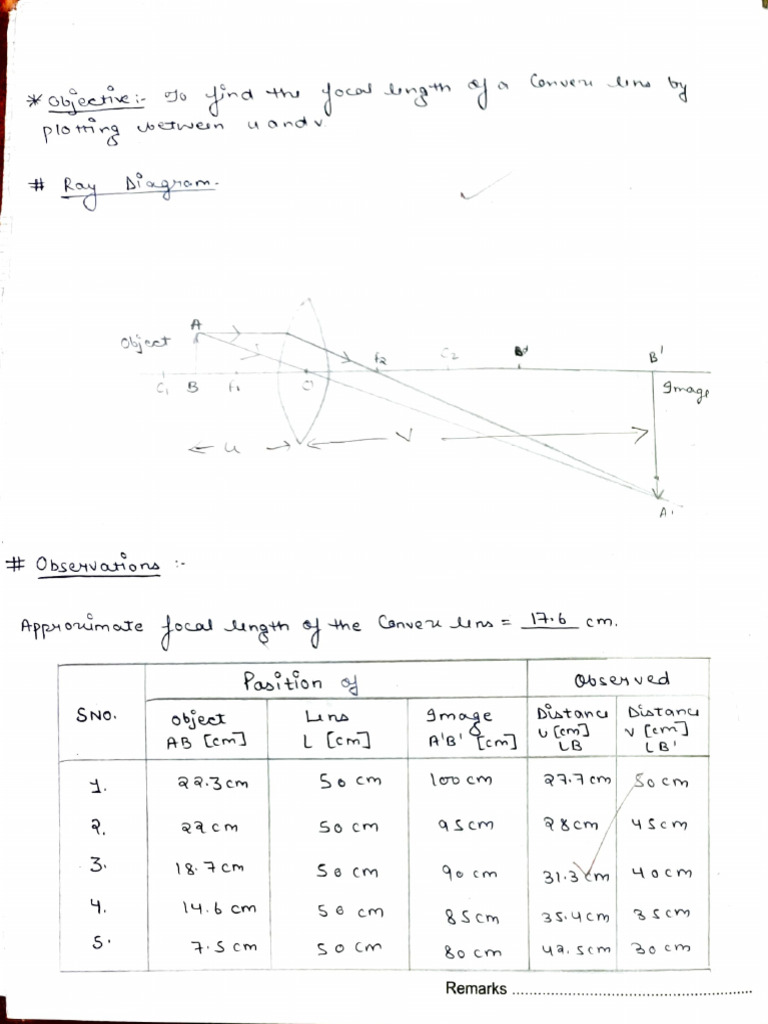 * Objective:- To find the focal length of a Convex lens by
plotting between u and v.
# Ray Diagram.
A
Object
F2
C2
B'
B'
C1
B
F1
O
Image
u
V
A'
# Observations :-
Approximate focal length of the Convex lens = 17.6 cm.
SNO.
Position of
Observed
Object
AB [cm]
Lens
L [cm]
Image
A'B' [cm]
Distance
u [cm]
LB
Distance
v [cm]
LB'
1. 22.3 cm 50 cm 100 cm 27.7 cm 50 cm
2. 22 cm 50 cm 95 cm 28 cm 45 cm
3. 18.7 cm 50 cm 90 cm 31.3 cm 40 cm
4. 14.6 cm 50 cm 85 cm 35.4 cm 35 cm
5. 7.5 cm 50 cm 80 cm 42.5 cm 30 cm
Remarks ..........................................................